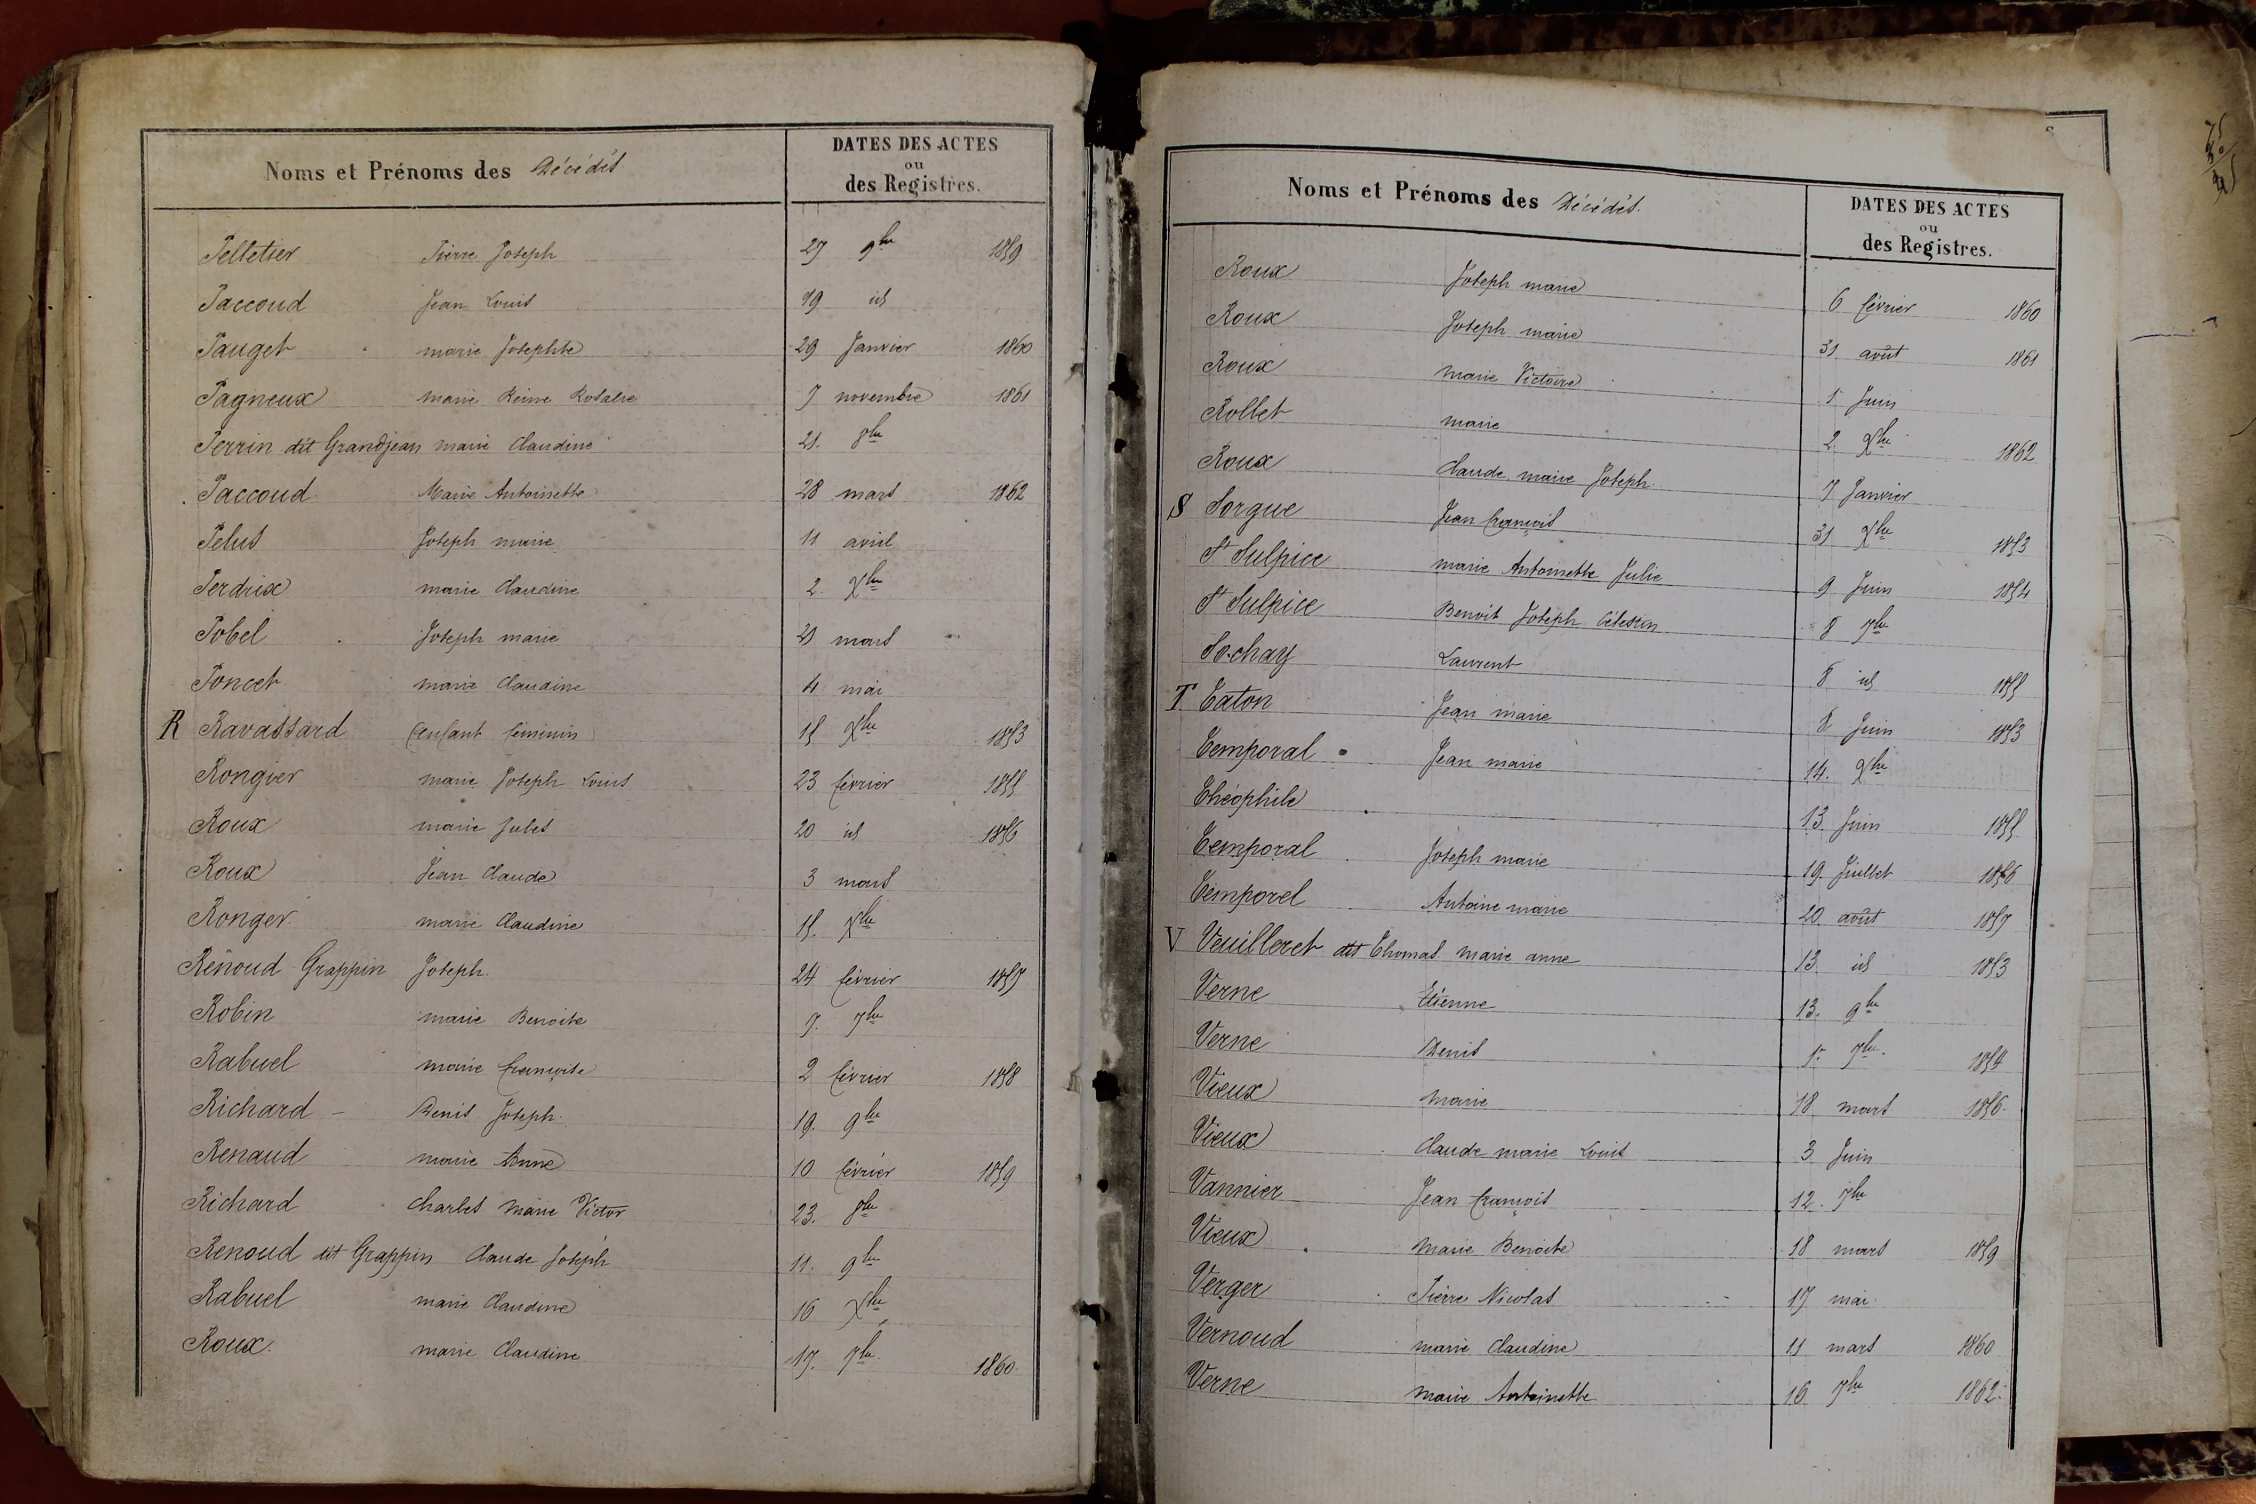 Noms et Prénoms des Décédés
DATES DES ACTES
ou
des Registres.
Pelletier Pierre Joseph 27 9bre 1859
Paccoud Jean Louis 19 id
Pauget marie Josephte 29 Janvier 1860
Pagneux marie Reine Rosalie 7 novembre 1861
Perrin dit Grandjean marie Claudine 21. 8bre
Paccoud Marie Antoinette 28 mars 1862
Pelus Joseph marie 11 avril
Perdrix marie Claudine 2. Xbre
Pobel Joseph marie 21 mars
Poncet marie Claudine 4 mai
R Ravassard (enfant féminin) 15 Xbre 1853
Rongier marie Joseph Louis 23 février 1855
Roux marie Jules 20 id 1856
Roux Jean Claude 3 mars
Ronger marie Claudine 15. Xbre
Rénoud Grappin Joseph 24 février 1857
Robin marie Benoite 9. 7bre
Rabuel marie françoise 2 février 1858
Richard Denis Joseph 19. 9bre
Renaud marie Anne 10 février 1859
Richard Charles Marie Victor 23. 8bre
Renoud dit Grappin Claude Joseph 11. 9bre
Rabuel marie Claudine 16 Xbre
Roux marie Claudine 17. 7bre 1860
Noms et Prénoms des Décédés.
DATES DES ACTES
ou
des Registres.
Roux Joseph marie 6 février 1860
Roux Joseph marie 31 août 1861
Roux Marie Victoire 1 Juin
Rollet marie 2. Xbre 1862
Roux Claude marie Joseph. 7 Janvier
S Sorgue Jean françois 31 Xbre 1853
St Sulpice marie Antoinette Julie 9 Juin 1854
St Sulpice Benoit Joseph Célestin 8 7bre
Sochay Laurent 8 id 1855
T Taton Jean marie 8 Juin 1853
Temporal Jean marie 14. 9bre
Théophile 13 Juin 1855
Temporal Joseph marie 19. Juillet 1856
Temporel Antoine marie 20 août 1857
V Veuilleret dit Thomas Marie anne 13 id 1853
Verne Etienne 13. 9bre
Verne Denis 1er 7bre. 1854
Vieux Marie 18 mars 1856.
Vieux Claude marie Louis 3 Juin
Vannier Jean françois 12. 7bre
Vieux Marie Benoite 18 mars 1859
Verger Pierre Nicolas 17 mai
Vernoud marie Claudine 11 mars 1860
Verne Marie Antoinette 16 7bre 1862